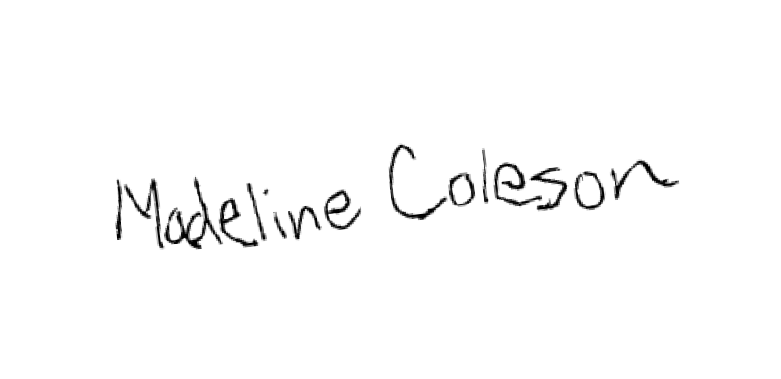 Madeline Coleson